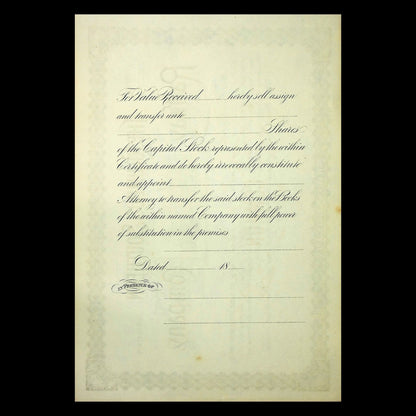 For Value Received hereby sell assign
and transfer unto
Shares
of the Capital Stock represented by the within
Certificate and do hereby irrevocably constitute
and appoint
Attorney to transfer the said stock on the Books
of the within named Company with full power
of substitution in the premises
Dated 18
IN PRESENCE OF